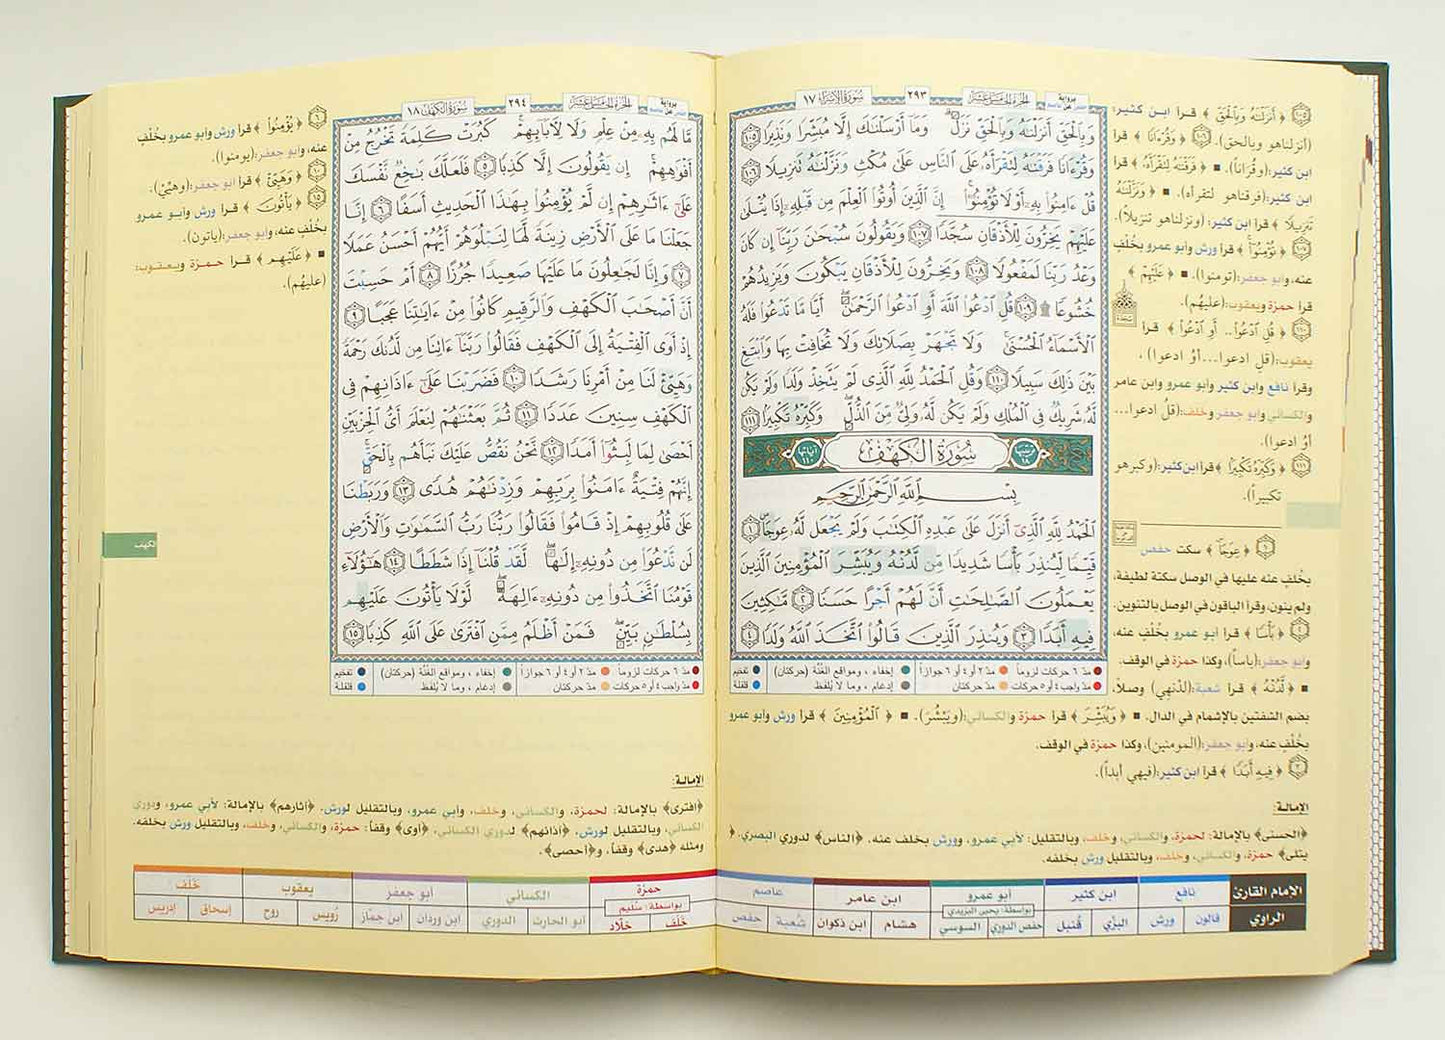 برواية حفص عن عاصم
الجزء الخامس عشر
٢٩٣
سورة الإسراء ١٧
وَبِالْحَقِّ أَنزَلْنَٰهُ وَبِالْحَقِّ نَزَلَ وَمَا أَرْسَلْنَٰكَ إِلَّا مُبَشِّرًا وَنَذِيرًا ١٠٥
وَقُرْءَانًا فَرَقْنَٰهُ لِتَقْرَأَهُ عَلَى النَّاسِ عَلَىٰ مُكْثٍ وَنَزَّلْنَٰهُ تَنزِيلًا ١٠٦
قُلْ ءَامِنُوا بِهِ أَوْ لَا تُؤْمِنُوا إِنَّ الَّذِينَ أُوتُوا الْعِلْمَ مِن قَبْلِهِ إِذَا يُتْلَىٰ
عَلَيْهِمْ يَخِرُّونَ لِلْأَذْقَانِ سُجَّدًا ١٠٧ وَيَقُولُونَ سُبْحَٰنَ رَبِّنَا إِن كَانَ
وَعْدُ رَبِّنَا لَمَفْعُولًا ١٠٨ وَيَخِرُّونَ لِلْأَذْقَانِ يَبْكُونَ وَيَزِيدُهُمْ
خُشُوعًا ۩ ١٠٩ قُلِ ادْعُوا اللَّهَ أَوِ ادْعُوا الرَّحْمَٰنَ أَيًّا مَّا تَدْعُوا فَلَهُ
الْأَسْمَاءُ الْحُسْنَىٰ وَلَا تَجْهَرْ بِصَلَاتِكَ وَلَا تُخَافِتْ بِهَا وَابْتَغِ
بَيْنَ ذَٰلِكَ سَبِيلًا ١١٠ وَقُلِ الْحَمْدُ لِلَّهِ الَّذِي لَمْ يَتَّخِذْ وَلَدًا وَلَمْ يَكُن
لَّهُ شَرِيكٌ فِي الْمُلْكِ وَلَمْ يَكُن لَّهُ وَلِيٌّ مِّنَ الذُّلِّ وَكَبِّرْهُ تَكْبِيرًا ١١١
ترتيبها ١٨ سُورَةُ الْكَهْفِ آياتها ١١٠
بِسْمِ اللَّهِ الرَّحْمَٰنِ الرَّحِيمِ
الْحَمْدُ لِلَّهِ الَّذِي أَنزَلَ عَلَىٰ عَبْدِهِ الْكِتَٰبَ وَلَمْ يَجْعَل لَّهُ عِوَجًا ١
قَيِّمًا لِّيُنذِرَ بَأْسًا شَدِيدًا مِّن لَّدُنْهُ وَيُبَشِّرَ الْمُؤْمِنِينَ الَّذِينَ
يَعْمَلُونَ الصَّٰلِحَٰتِ أَنَّ لَهُمْ أَجْرًا حَسَنًا ٢ مَّٰكِثِينَ
فِيهِ أَبَدًا ٣ وَيُنذِرَ الَّذِينَ قَالُوا اتَّخَذَ اللَّهُ وَلَدًا ٤
مدّ ٦ حركات لزوماً مدّ ٢ أو ٤ أو ٦ جوازاً إخفاء ، ومواقع الغُنَّة (حركتان) تفخيم
مدّ واجب ٤ أو ٥ حركات مدّ حركتان إدغام ، وما لا يُلفظ قلقلة
﴿ أَنزَلْنَٰهُ وَبِالْحَقِّ ﴾ قرأ ابن كثير:
(أنزلناهو وبالحق). ﴿ وَقُرْءَانًا ﴾ قرأ
ابن كثير:(وقُرَاناً). ﴿ فَرَقْنَٰهُ لِتَقْرَأَهُ ﴾ قرأ
ابن كثير:(فرقناهو لتقرأه). ﴿ وَنَزَّلْنَٰهُ
تَنزِيلًا ﴾ قرأ ابن كثير: (ونزلناهو تنزيلاً).
﴿ تُؤْمِنُوا ﴾ قرأ ورش وأبو عمرو بخُلْفٍ
عنه، وأبو جعفر:(تومنوا). ﴿ عَلَيْهِمْ ﴾
قرأ حمزة ويعقوب:(عليهُم).
﴿ قُلِ ادْعُوا.. أَوِ ادْعُوا ﴾ قرأ
يعقوب:(قلِ ادعوا...أوُ ادعوا) ،
وقرأ نافع وابن كثير وأبو عمرو وابن عامر
والكسائي وأبو جعفر وخلف:(قلُ ادعوا...
أوُ ادعوا).
﴿ وَكَبِّرْهُ تَكْبِيرًا ﴾ قرأ ابن كثير:(وكبرهو
تكبيراً).
﴿ عِوَجًا ﴾ سكت حفص
بخُلفٍ عنه عليها في الوصل سكتة لطيفة،
ولم ينون، وقرأ الباقون في الوصل بالتنوين.
﴿ بَأْسًا ﴾ قرأ أبو عمرو بخُلْفٍ عنه،
وأبو جعفر:(باساً)، وكذا حمزة في الوقف.
﴿ لَّدُنْهُ ﴾ قرأ شعبة:(لدْنهِي) وصلاً،
بضم الشفتين بالإشمام في الدال. ﴿ وَيُبَشِّرَ ﴾ قرأ حمزة والكسائي:(ويَبْشُرَ). ﴿ الْمُؤْمِنِينَ ﴾ قرأ ورش وأبو عمرو
بخُلْفٍ عنه، وأبو جعفر:(المومنين)، وكذا حمزة في الوقف.
﴿ فِيهِ أَبَدًا ﴾ قرأ ابن كثير:(فيهي أبداً).
الإمالة:
﴿الحسنى﴾ بالإمالة: لحمزة، والكسائي، وخلف، وبالتقليل: لأبي عمرو، وورش بخلف عنه. ﴿الناس﴾ لدوري البصري. ﴿
يتلى﴾ حمزة، والكسائي، وخلف، وبالتقليل ورش بخلفه.
برواية حفص عن عاصم
الجزء الخامس عشر
٢٩٤
سورة الكهف ١٨
مَّا لَهُم بِهِ مِنْ عِلْمٍ وَلَا لِآبَائِهِمْ كَبُرَتْ كَلِمَةً تَخْرُجُ مِنْ
أَفْوَٰهِهِمْ إِن يَقُولُونَ إِلَّا كَذِبًا ٥ فَلَعَلَّكَ بَٰخِعٌ نَّفْسَكَ
عَلَىٰ ءَاثَٰرِهِمْ إِن لَّمْ يُؤْمِنُوا بِهَٰذَا الْحَدِيثِ أَسَفًا ٦ إِنَّا
جَعَلْنَا مَا عَلَى الْأَرْضِ زِينَةً لَّهَا لِنَبْلُوَهُمْ أَيُّهُمْ أَحْسَنُ عَمَلًا
٧ وَإِنَّا لَجَٰعِلُونَ مَا عَلَيْهَا صَعِيدًا جُرُزًا ٨ أَمْ حَسِبْتَ
أَنَّ أَصْحَٰبَ الْكَهْفِ وَالرَّقِيمِ كَانُوا مِنْ ءَايَٰتِنَا عَجَبًا ٩
إِذْ أَوَى الْفِتْيَةُ إِلَى الْكَهْفِ فَقَالُوا رَبَّنَا ءَاتِنَا مِن لَّدُنكَ رَحْمَةً
وَهَيِّئْ لَنَا مِنْ أَمْرِنَا رَشَدًا ١٠ فَضَرَبْنَا عَلَىٰ ءَاذَانِهِمْ فِي
الْكَهْفِ سِنِينَ عَدَدًا ١١ ثُمَّ بَعَثْنَٰهُمْ لِنَعْلَمَ أَيُّ الْحِزْبَيْنِ
أَحْصَىٰ لِمَا لَبِثُوا أَمَدًا ١٢ نَّحْنُ نَقُصُّ عَلَيْكَ نَبَأَهُم بِالْحَقِّ
إِنَّهُمْ فِتْيَةٌ ءَامَنُوا بِرَبِّهِمْ وَزِدْنَٰهُمْ هُدًى ١٣ وَرَبَطْنَا
عَلَىٰ قُلُوبِهِمْ إِذْ قَامُوا فَقَالُوا رَبُّنَا رَبُّ السَّمَٰوَٰتِ وَالْأَرْضِ
لَن نَّدْعُوَا مِن دُونِهِ إِلَٰهًا لَّقَدْ قُلْنَا إِذًا شَطَطًا ١٤ هَٰؤُلَاءِ
قَوْمُنَا اتَّخَذُوا مِن دُونِهِ ءَالِهَةً لَّوْلَا يَأْتُونَ عَلَيْهِم
بِسُلْطَٰنٍ بَيِّنٍ فَمَنْ أَظْلَمُ مِمَّنِ افْتَرَىٰ عَلَى اللَّهِ كَذِبًا ١٥
مدّ ٦ حركات لزوماً مدّ ٢ أو ٤ أو ٦ جوازاً إخفاء ، ومواقع الغُنَّة (حركتان) تفخيم
مدّ واجب ٤ أو ٥ حركات مدّ حركتان إدغام ، وما لا يُلفظ قلقلة
﴿ يُؤْمِنُوا ﴾ قرأ ورش وأبو عمرو بخُلْفٍ
عنه، وأبو جعفر:(يومنوا).
﴿ وَهَيِّئْ ﴾ قرأ أبو جعفر:(وهيِّيْ).
﴿ يَأْتُونَ ﴾ قرأ ورش وأبو عمرو
بخُلْفٍ عنه، وأبو جعفر:(ياتون).
﴿ عَلَيْهِم ﴾ قرأ حمزة ويعقوب:
(عليهُم).
الكهف
الإمالة:
﴿افترى﴾ بالإمالة: لحمزة، والكسائي، وخلف، وأبي عمرو، وبالتقليل لورش. ﴿آثارهم﴾ بالإمالة: لأبي عمرو، ودوري
الكسائي، وبالتقليل لورش. ﴿آذانهم﴾ لدوري الكسائي. ﴿أوى﴾ وقفاً: حمزة، والكسائي، وخلف، وبالتقليل ورش بخلفه.
ومثله ﴿هدى﴾ وقفاً، و﴿أحصى﴾.
الإمام القارئ نافع ابن كثير أبو عمرو ابن عامر عاصم حمزة الكسائي أبو جعفر يعقوب خلف
بواسطة: يحيى اليزيدي بواسطة: سُليم
الراوي قالون ورش البزّي قُنبل حفص الدوري السوسي هشام ابن ذكوان شعبة حفص خَلَف خلّاد أبو الحارث الدوري ابن وردان ابن جمّاز رُويس روح إسحاق إدريس